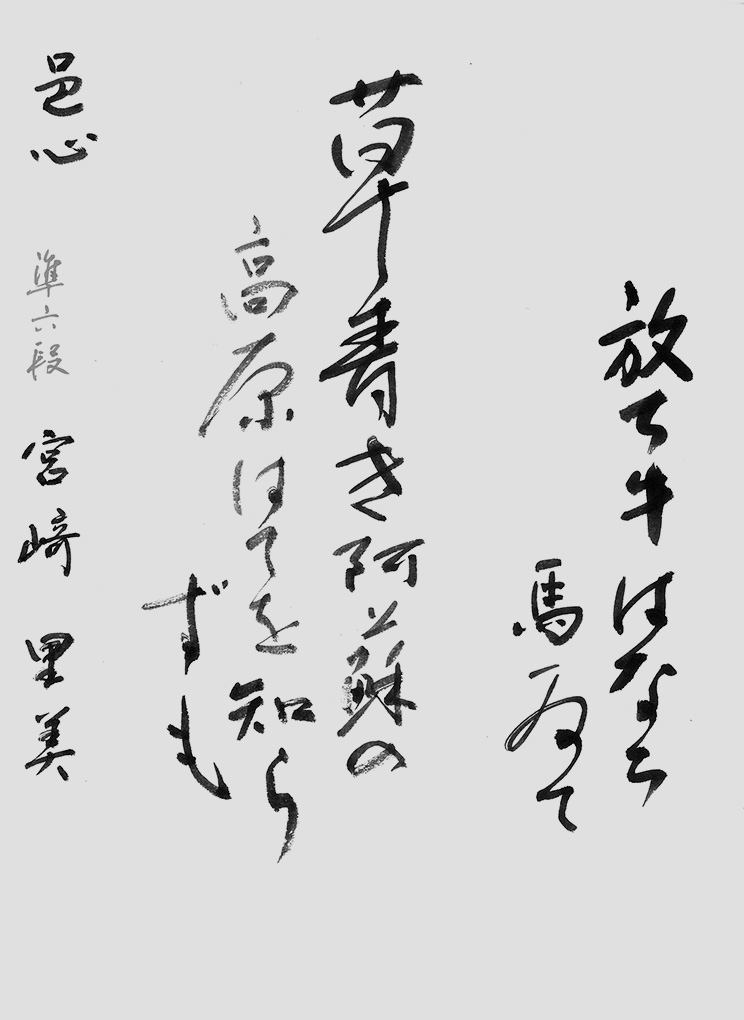 放ち牛はなち
馬て
草青き阿蘇の
高原はてを知ら
ずも
邑心 準六段 宮崎 里美